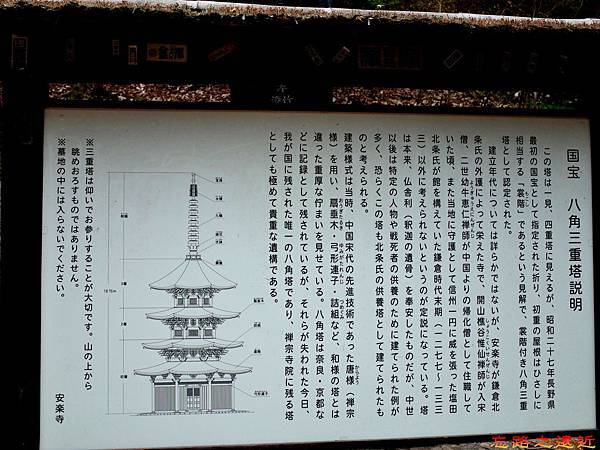 国宝 八角三重塔説明
この塔は一見、四重塔に見えるが、昭和二十七年長野県
最初の国宝として指定された折り、初重の屋根はひさしに
相当する「裳階」であるという見解で、裳階付き八角三重
塔として認定された。
建立年代については詳らかではないが、安楽寺が鎌倉北
条氏の外護によって栄えた寺で、開山樵谷惟仙禅師が入宋
僧、二世幼牛恵仁禅師が中国よりの帰化僧として住職して
いた頃、また当地に守護として信州一円に威を張った塩田
北条氏が館を構えていた鎌倉時代末期(一二七七~一三三
三)以外に考えられないというのが定説になっている。塔
は本来、仏舎利(釈迦の遺骨)を奉安したものだが、中世
以後は特定の人物や戦死者の供養のために建てられた例が
多く、恐らくこの塔も北条氏の供養塔として建てられたも
のと考えられる。
建築様式は当時、中国宋代の先進技術であった唐様(禅宗
様)を用い、扇垂木・弓形連子・詰組など、和様の塔とは
違った重厚な佇まいを見せている。八角塔は奈良・京都な
どに記録として残されているが、それらが失われた今日、
我が国に残された唯一の八角塔であり、禅宗寺院に残る塔
としても極めて貴重な遺構である。
※三重塔は仰いでお参りすることが大切です。山の上から
眺めおろすものではありません。
※墓地の中には入らないでください。
安楽寺
忘路之遠近